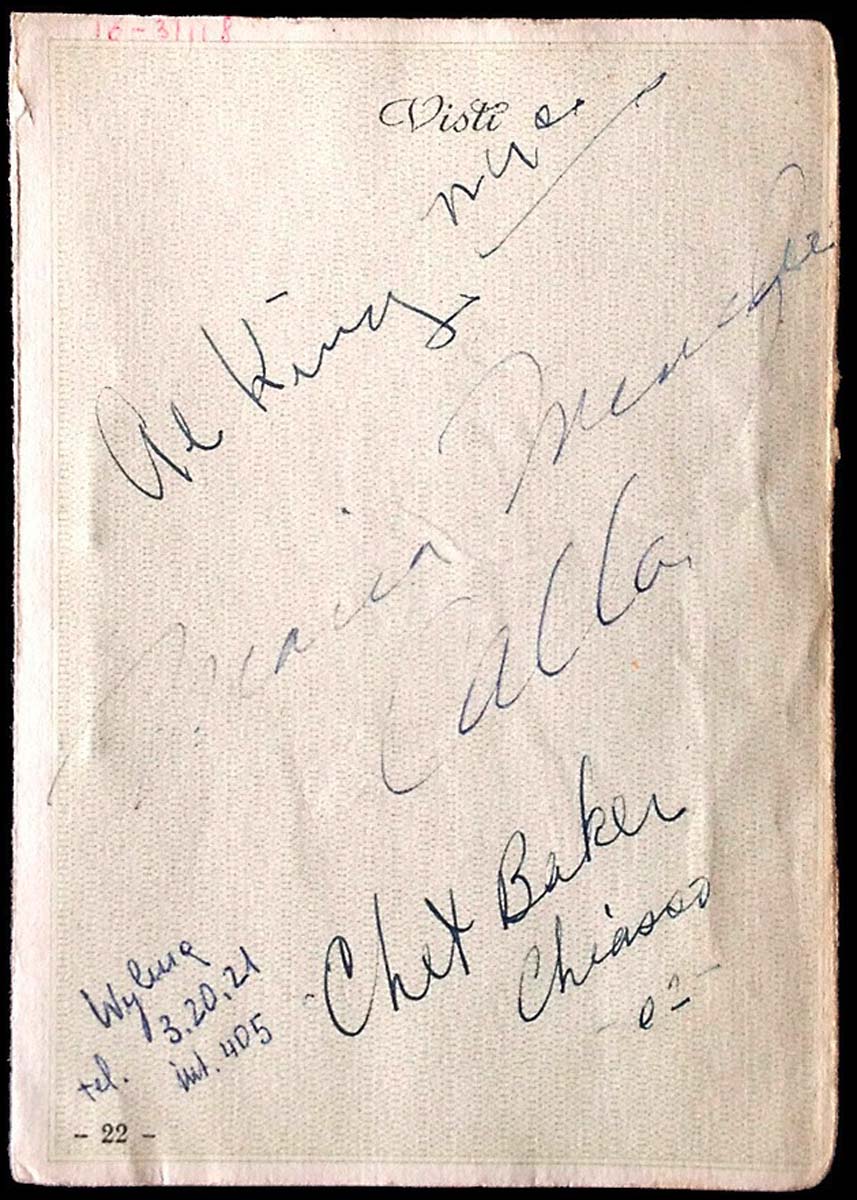 Visti
Al King
Maria Meneghi
Callas
Chet Baker
Chiasso
Wylma
tel. 3.20.21
int. 405
- 22 -